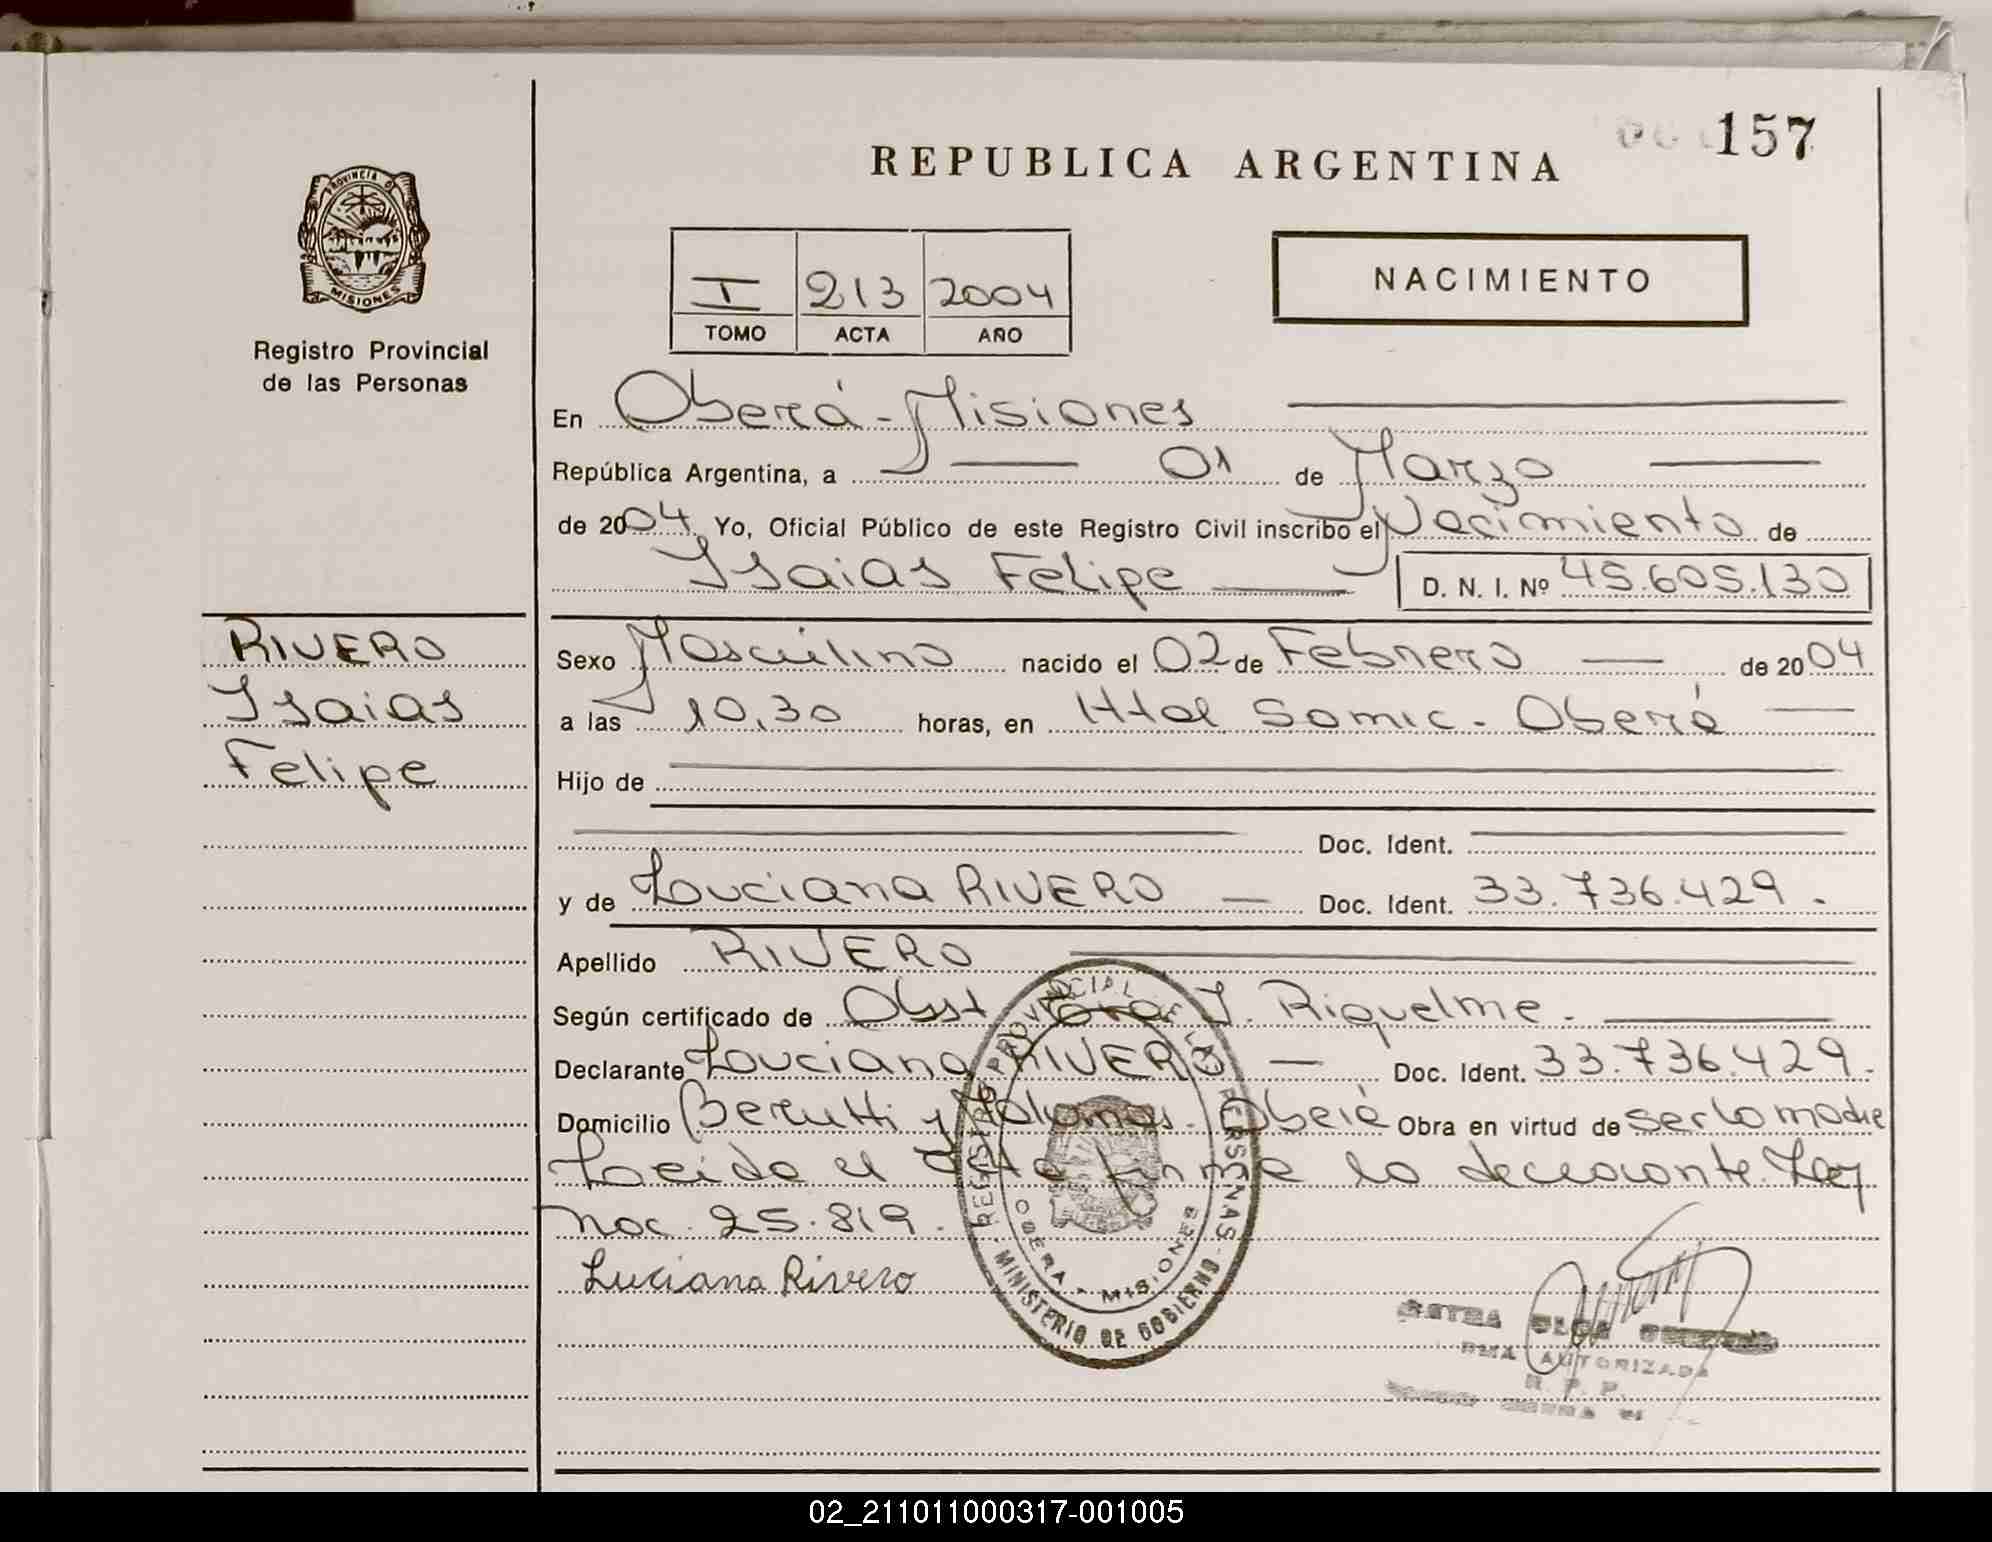 REPUBLICA ARGENTINA
157
PROVINCIA DE
MISIONES
Registro Provincial
de las Personas
I 213 2004
TOMO ACTA AÑO
NACIMIENTO
En Oberá - Misiones
República Argentina, a 01 de Marzo
de 2004 Yo, Oficial Público de este Registro Civil inscribo el Nacimiento de
Isaias Felipe D. N. I. Nº 45.605.130
RIVERO
Isaias
Felipe
Sexo Masculino nacido el 02 de Febrero de 2004
a las 10,30 horas, en Htal Samic - Oberá
Hijo de
Doc. Ident.
y de Luciana RIVERO Doc. Ident. 33.736.429.
Apellido RIVERO
Según certificado de Obst J. Riquelme.
Declarante Luciana RIVERO Doc. Ident. 33.736.429.
Domicilio Berutti y Oberá Obra en virtud de ser la madre
Leida el Acta firma la declarante. Ley
Nac. 25.819.
Luciana Rivero
REGISTRO PROVINCIAL DE LAS PERSONAS
MINISTERIO DE GOBIERNO
OBERA - MISIONES
OLGA
AUTORIZADA
R. P. P.
02_211011000317-001005